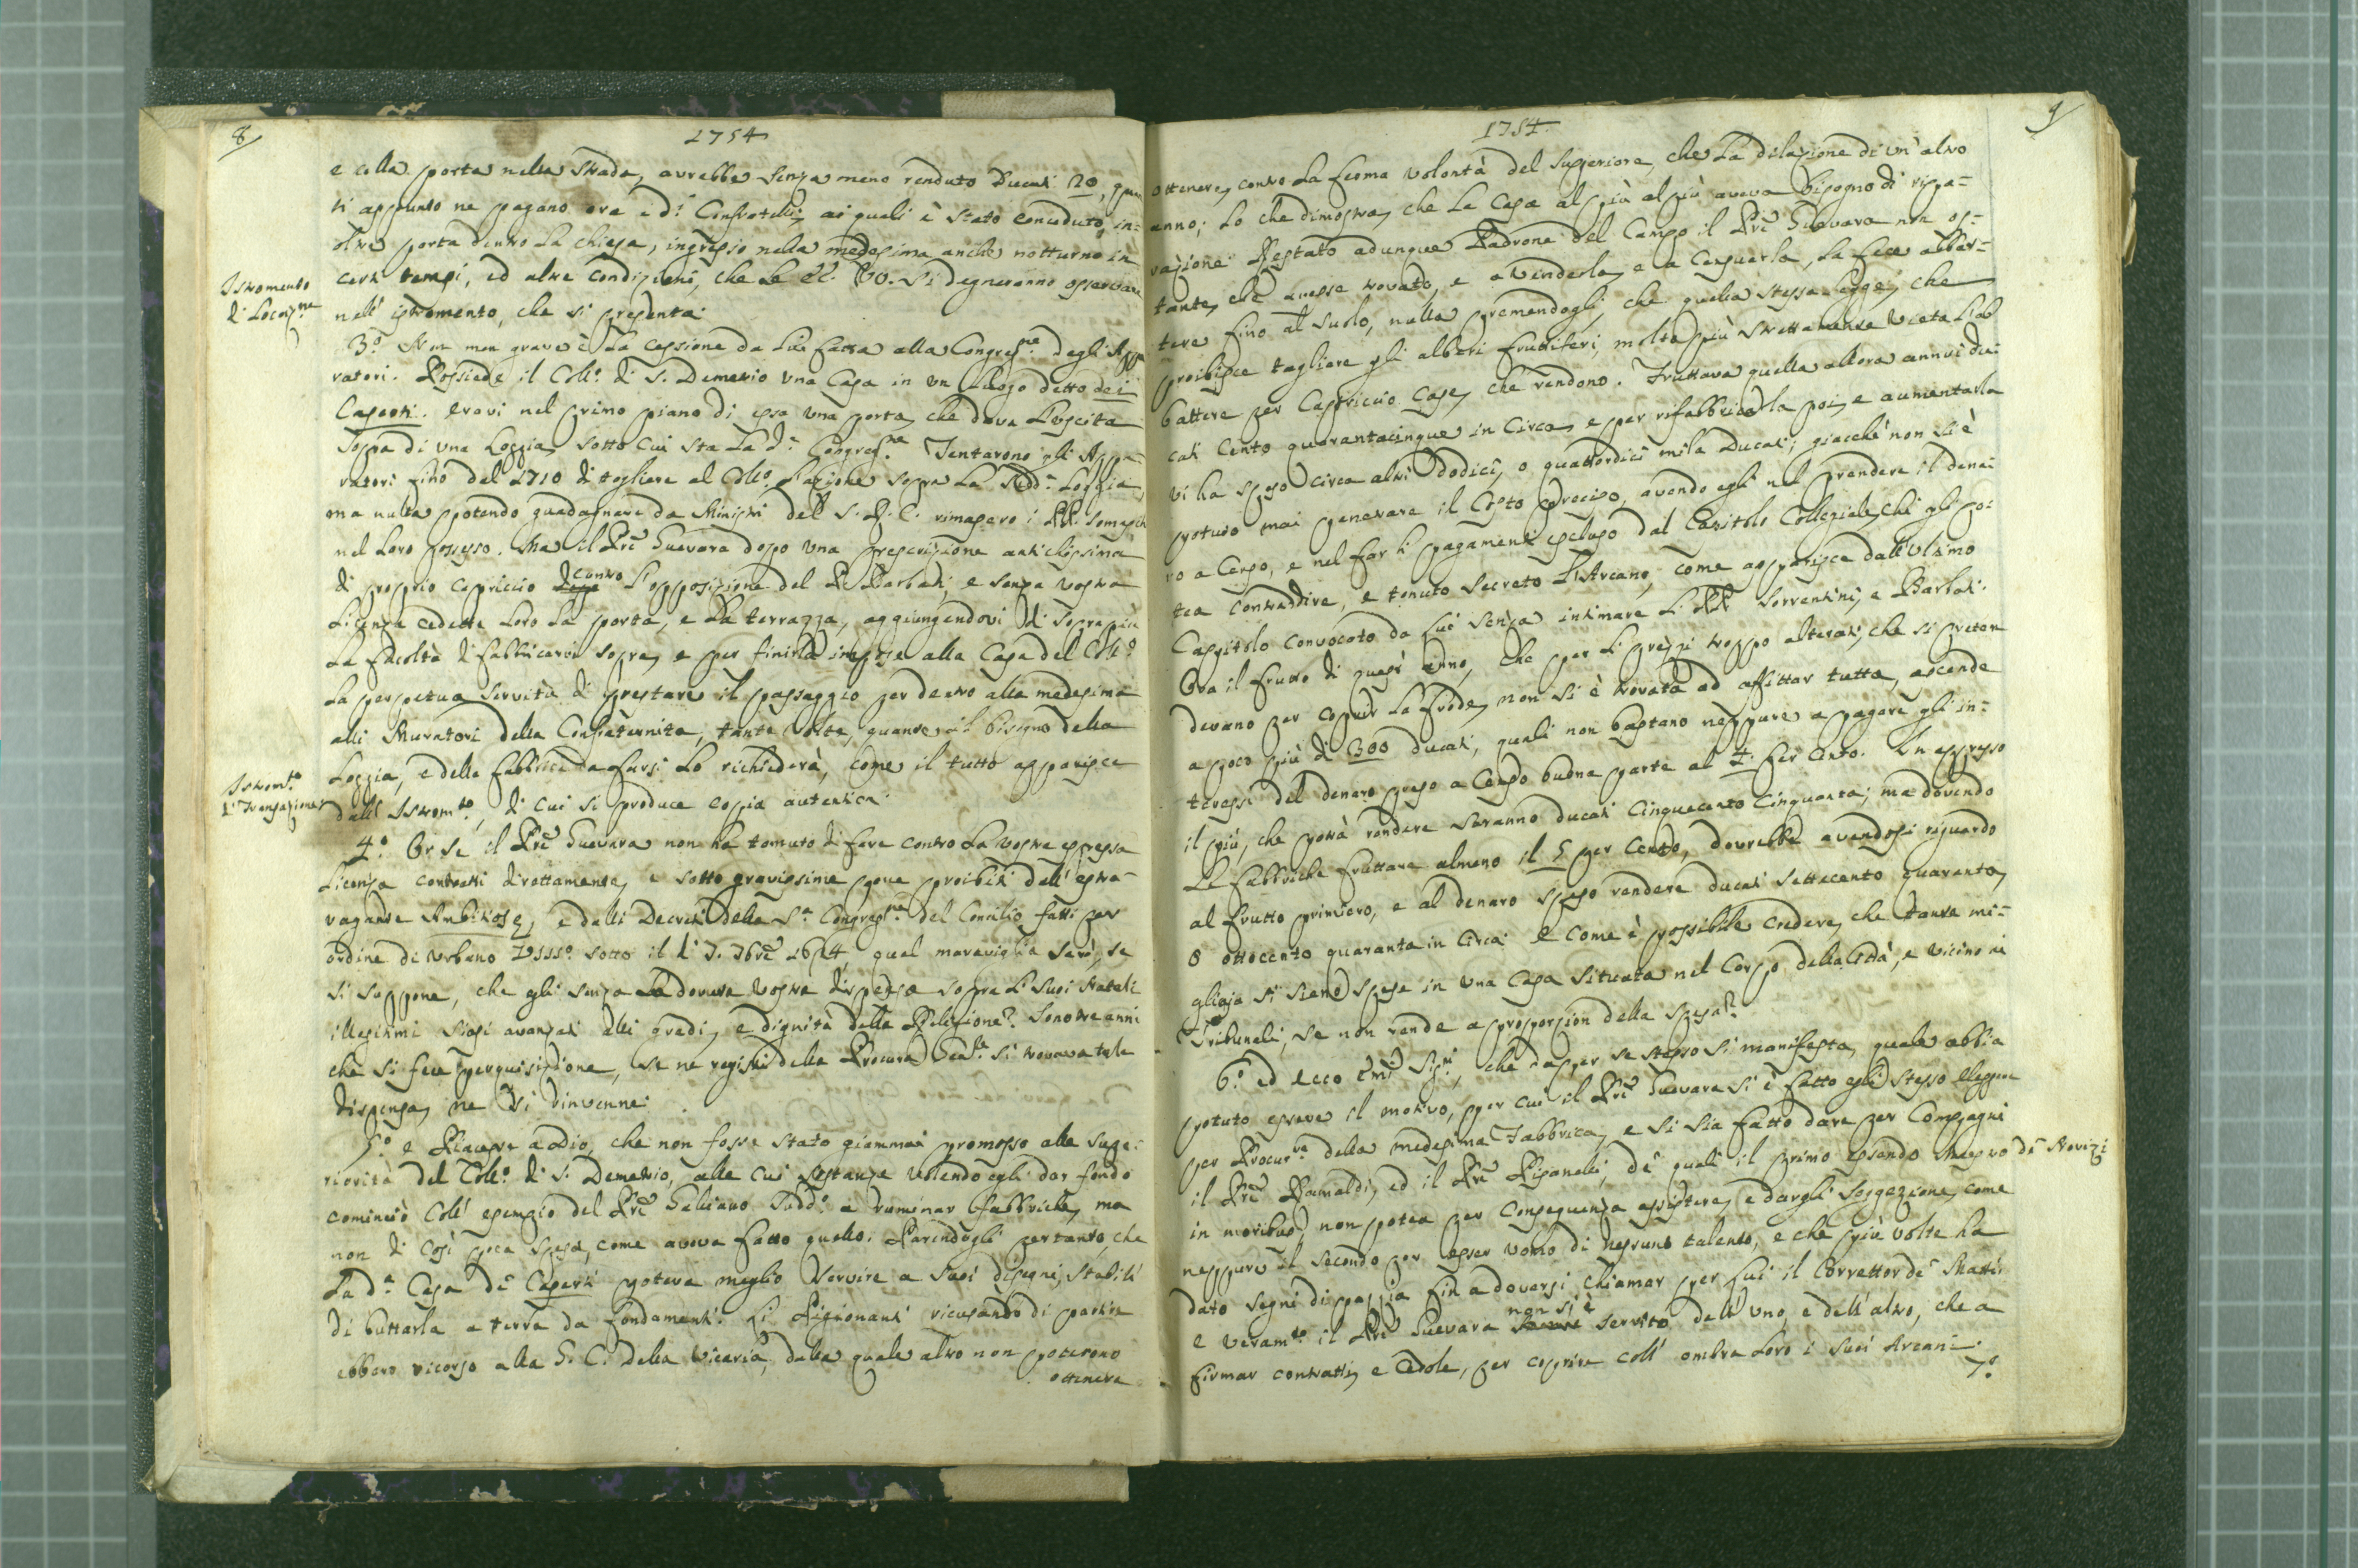 8
1754
e colla porta nella strada, avrebbe senza meno renduto Ducati 20, quan
ti appunto ne pagano ora i dⁱ Confratelli; ai quali è stato conceduto, in-
oltre porta dentro la Chiesa, ingresso nella medesima anche notturno in
certi tempi, ed altre condizioni, che le EE. VV. si degneranno osservare
nell' istromento, che si presenta.
Istromento
di Locaz.ne
3.º Non men grave è la cessione da lui fatta alla Congreg.ne degl'Appa
ratori. Possiede il Coll.º di S. Demetrio una Casa in un luogo detto dei
Caserti. Eravi nel primo piano di essa una porta, che dava l'uscita
sopra di una Loggia, sotto cui sta la d.ª Congreg.ne Tentarono gli Appa-
ratori fino dal 1710 di togliere al Coll.º l'azione sopra la sud.ª Loggia,
ma nulla potendo guadagnare da Ministri del S. R. C. rimasero i PP. Somaschi
nel loro possesso. Ma il Pre Guevara dopo una prescrizione antichissima
di proprio capriccio contro l'opposizione del P. Barbati, e senza vostra
licenza cedette loro la porta, e la terrazza, aggiungendovi di soprapiù
la facoltà di fabbricarvi sopra, e per finirla impose alla Casa del Coll.º
la perpetua servitù di prestare il passaggio per dentro alla medesima
alli Muratori della Confraternita, tante volte, quante il bisogno della
Loggia, e delle fabbriche da farsi lo richiederà, come il tutto apparisce
dall' Istrom.to, di cui si produce copia autentica.
Istrom.to
di Transazione
4.º Or se il Pre Guevara non ha temuto di fare contro la vostra espressa
licenza contratti direttamente, e sotto gravissime pene proibiti dall' estra-
vagante Ambitiosæ, e dalli Decreti della S.ª Congreg.ne del Concilio fatti per
ordine di Urbano VIII.º sotto il dì 7. 7bre 1624, qual maraviglia sarà, se
si suppone, che gli senza la dovuta vostra dispensa sopra li suoi Natali
illegitimi siasi avanzati alli gradi, e dignità della Religione? Sono tre anni
che si fece perquisizione, se ne registri della Procura Gen.le si trovava tale
dispensa, ne vi rinvenne.
5.º e Piacesse a Dio, che non fosse stato giammai promosso alla supe-
riorità del Coll.º di S. Demetrio, alle cui sostanze volendo egli dar fondo
cominciò coll' esempio del Pre Galiano Sudd.º a ruminar fabbriche, ma
non di così poca spesa, come aveva fatto quello. Parendogli pertanto, che
la d.ª Casa de' Caserti poteva meglio servire a suoi disegni, stabilì
di buttarla a terra da fondamenti. Li Pigionanti ricusando di partire
ebbero ricorso alla G. C. della Vicaria, dalla quale altro non poterono
ottenere
9
1754.
ottenere, contro la ferma volontà del Superiore, che la dilazione di un' altro
anno; lo che dimostra, che la Casa al più al più aveva bisogno di ripa-
razione. Restato adunque Padrone del Campo il Pre Guevara non os-
tante, che avesse trovato, e a venderla, e a censuarla, la fece abbat-
tere fino al suolo, nulla premendogli, che quella stessa legge, che
proibisce tagliare gli alberi fruttiferi, molto più strettamente vieta l'ab
battere per Capriccio Case, che rendono. Fruttava quella allora annui du-
cati Cento quarantacinque in circa, e per rifabbricarla poi, e aumentarla
vi ha speso circa altri dodici, o quattordici mila Ducati; giacchè non si è
potuto mai penetrare il Costo preciso, avendo egli nel prendere il dena-
ro a Censo, e nel far li pagamenti escluso dal Capitolo Collegiale chi gli po-
tea contraddire, e tenuto secreto l'Arcano, come apparisce dall'ultimo
Capitolo convocato da lui senza intimare li PP. Sorrentini, e Barbati.
Ora il frutto di quest' anno, che per li prezzi troppo alterati, che si preten
devano per coprir la frode, non si è trovata ad affittar tutta, ascende
a poco più di 300 ducati, quali non bastano neppure a pagare gli in-
teressi del denaro preso a Censo buona parte al 4. per Cento. In appresso
il più, che potrà rendere saranno ducati Cinquecento Cinquanta; ma dovendo
le fabbriche fruttare almeno il 5 per Cento, dovrebbe avendosi riguardo
al frutto primiero, e al denaro speso rendere ducati Settecento quaranta,
o ottocento quaranta in circa: e come è possibile credere, che tante mi-
gliaja si siano spese in una Casa situata nel Corpo della Città, e vicino ai
Tribunali, se non rende a proporzion della spesa?
6.º ed ecco Emi Sig.ri, che da per se stesso si manifesta, quale abbia
potuto essere il motivo, per cui il Pre Guevara si è fatto egli stesso eleggere
per Procur.re della medesima Fabbrica, e si sia fatto dare per Compagni
il Pre Ramaldi, ed il Pre Pisanelli, de' quali il primo essendo Maestro de' Novizi
in moribus, non potea per conseguenza assistere, e dargli soggezione, come
neppure il secondo per esser uomo di nessuno talento, e che più volte ha
dato segni di pazzia fin a doversi chiamar per lui il Correttor de' Matti.
e veram.te il Pre Guevara non si è servito dell' uno, e dell' altro, che a
firmar contratti, e Cedole, per coprire coll' ombra loro i suoi Arcani.
7.º